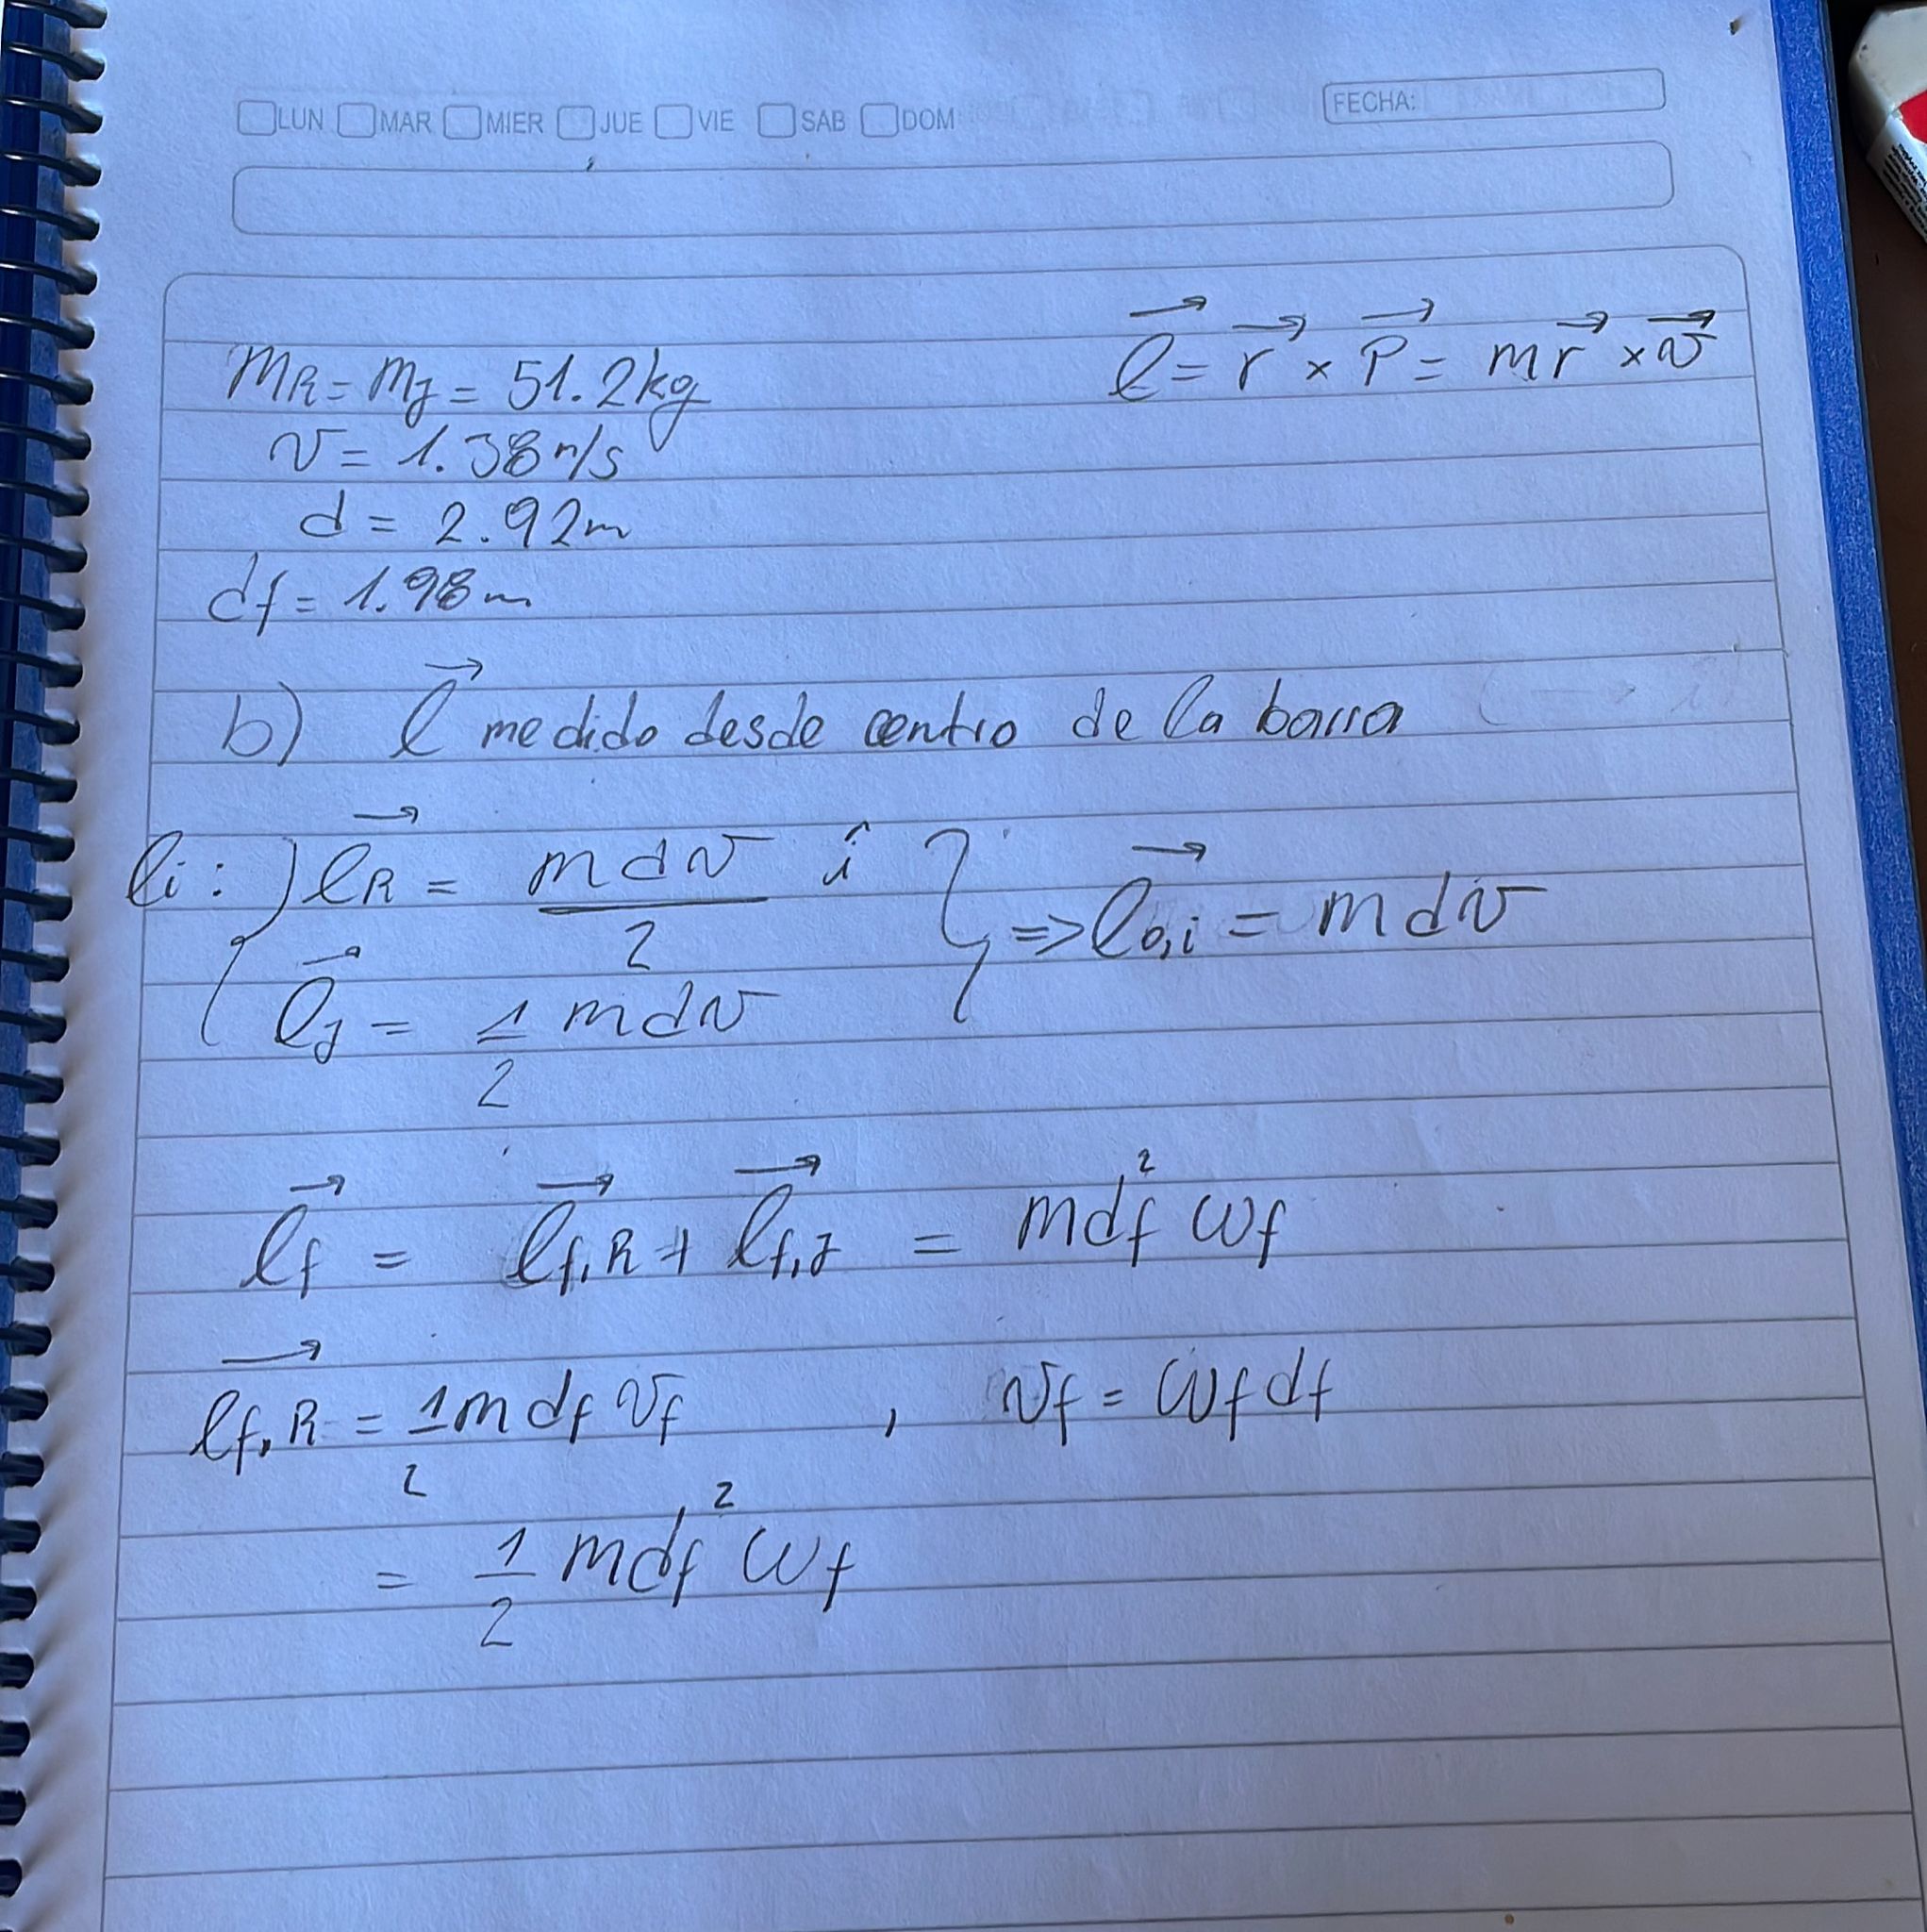 LUN MAR MIER JUE VIE SAB DOM FECHA:
m_R = m_J = 51.2 kg
v = 1.38 m/s
d = 2.92 m
df = 1.98 m
ℓ⃗ = r⃗ × P⃗ = m r⃗ × v⃗
b) ℓ⃗ medido desde centro de la barra
ℓi: ℓ⃗_R = mdv/2 î
ℓ⃗_J = 1/2 mdv
⇒ ℓ⃗_o,i = mdv
ℓ⃗_f = ℓ⃗_f,R + ℓ⃗_f,J = m df² ωf
ℓ⃗_f,R = 1/2 m df vf , vf = ωf df
= 1/2 m df² ωf